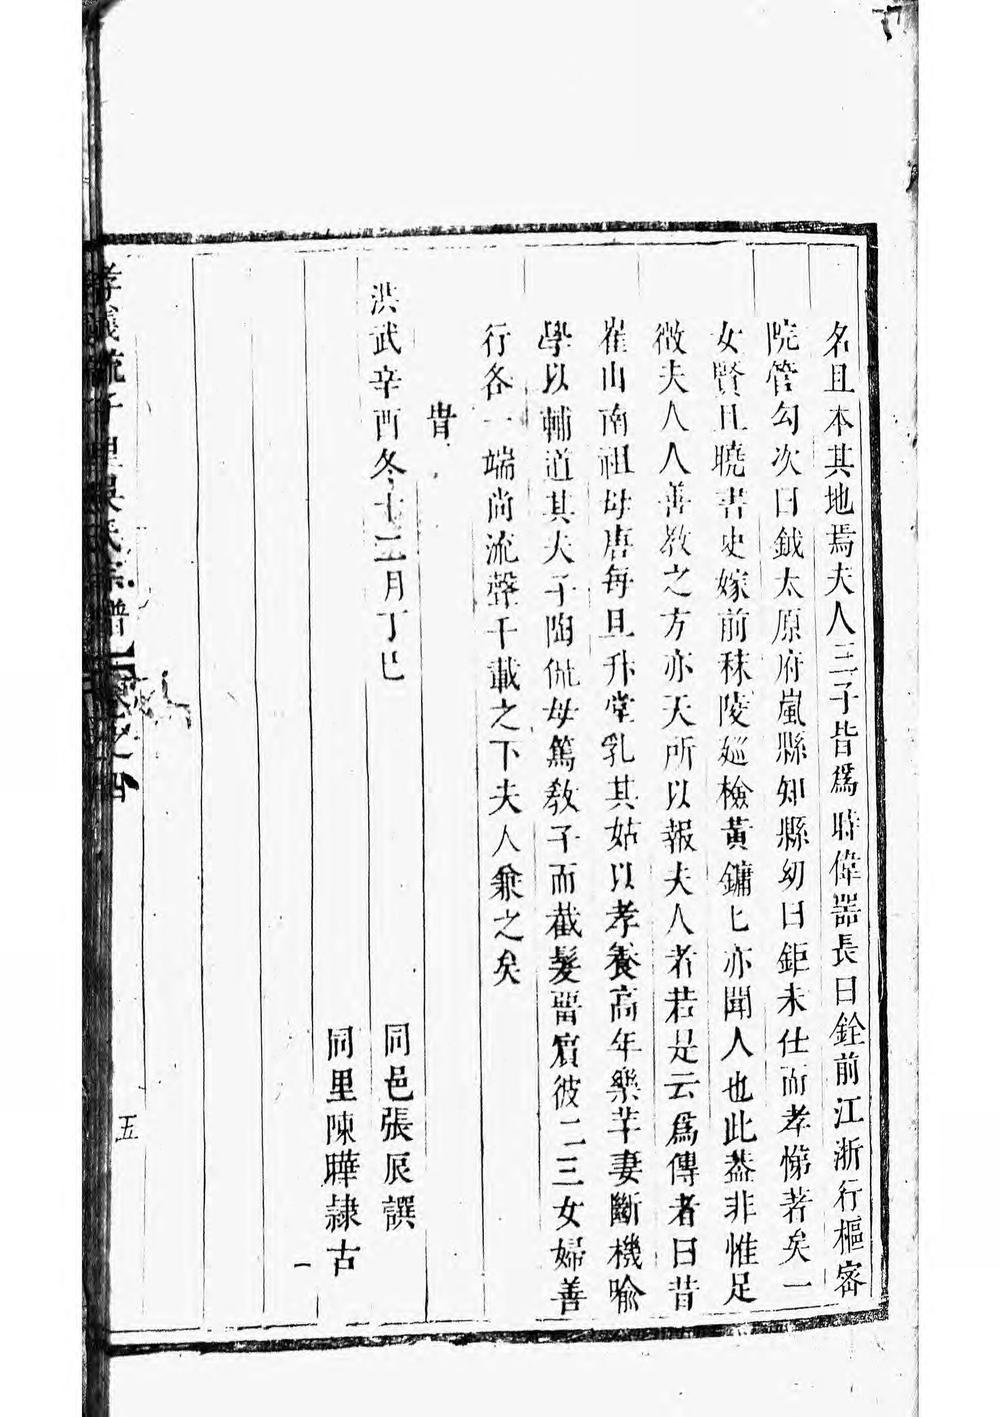 名且本其地焉夫人三子皆爲時偉器長曰銓前江浙行樞密
院管勾次曰鉞太原府嵐縣知縣幼曰鉅未仕而孝悌著矣一
女賢且曉書史嫁前秣陵廵檢黃鏞匕亦聞人也此葢非惟足
徴夫人人善教之方亦天所以報夫人者若是云爲傳者曰昔
崔山南祖母唐每旦升堂乳其姑以孝養高年樂羊妻斷機喩
學以輔道其夫子陶侃母篤敎子而截髮畱賔彼二三女婦善
行各一端尚流聲千載之下夫人兼之矣
旹
洪武辛酉冬十二月丁巳
同邑張辰譔
同里陳曄隷古
孝義 里吳氏宗譜 卷之四
五